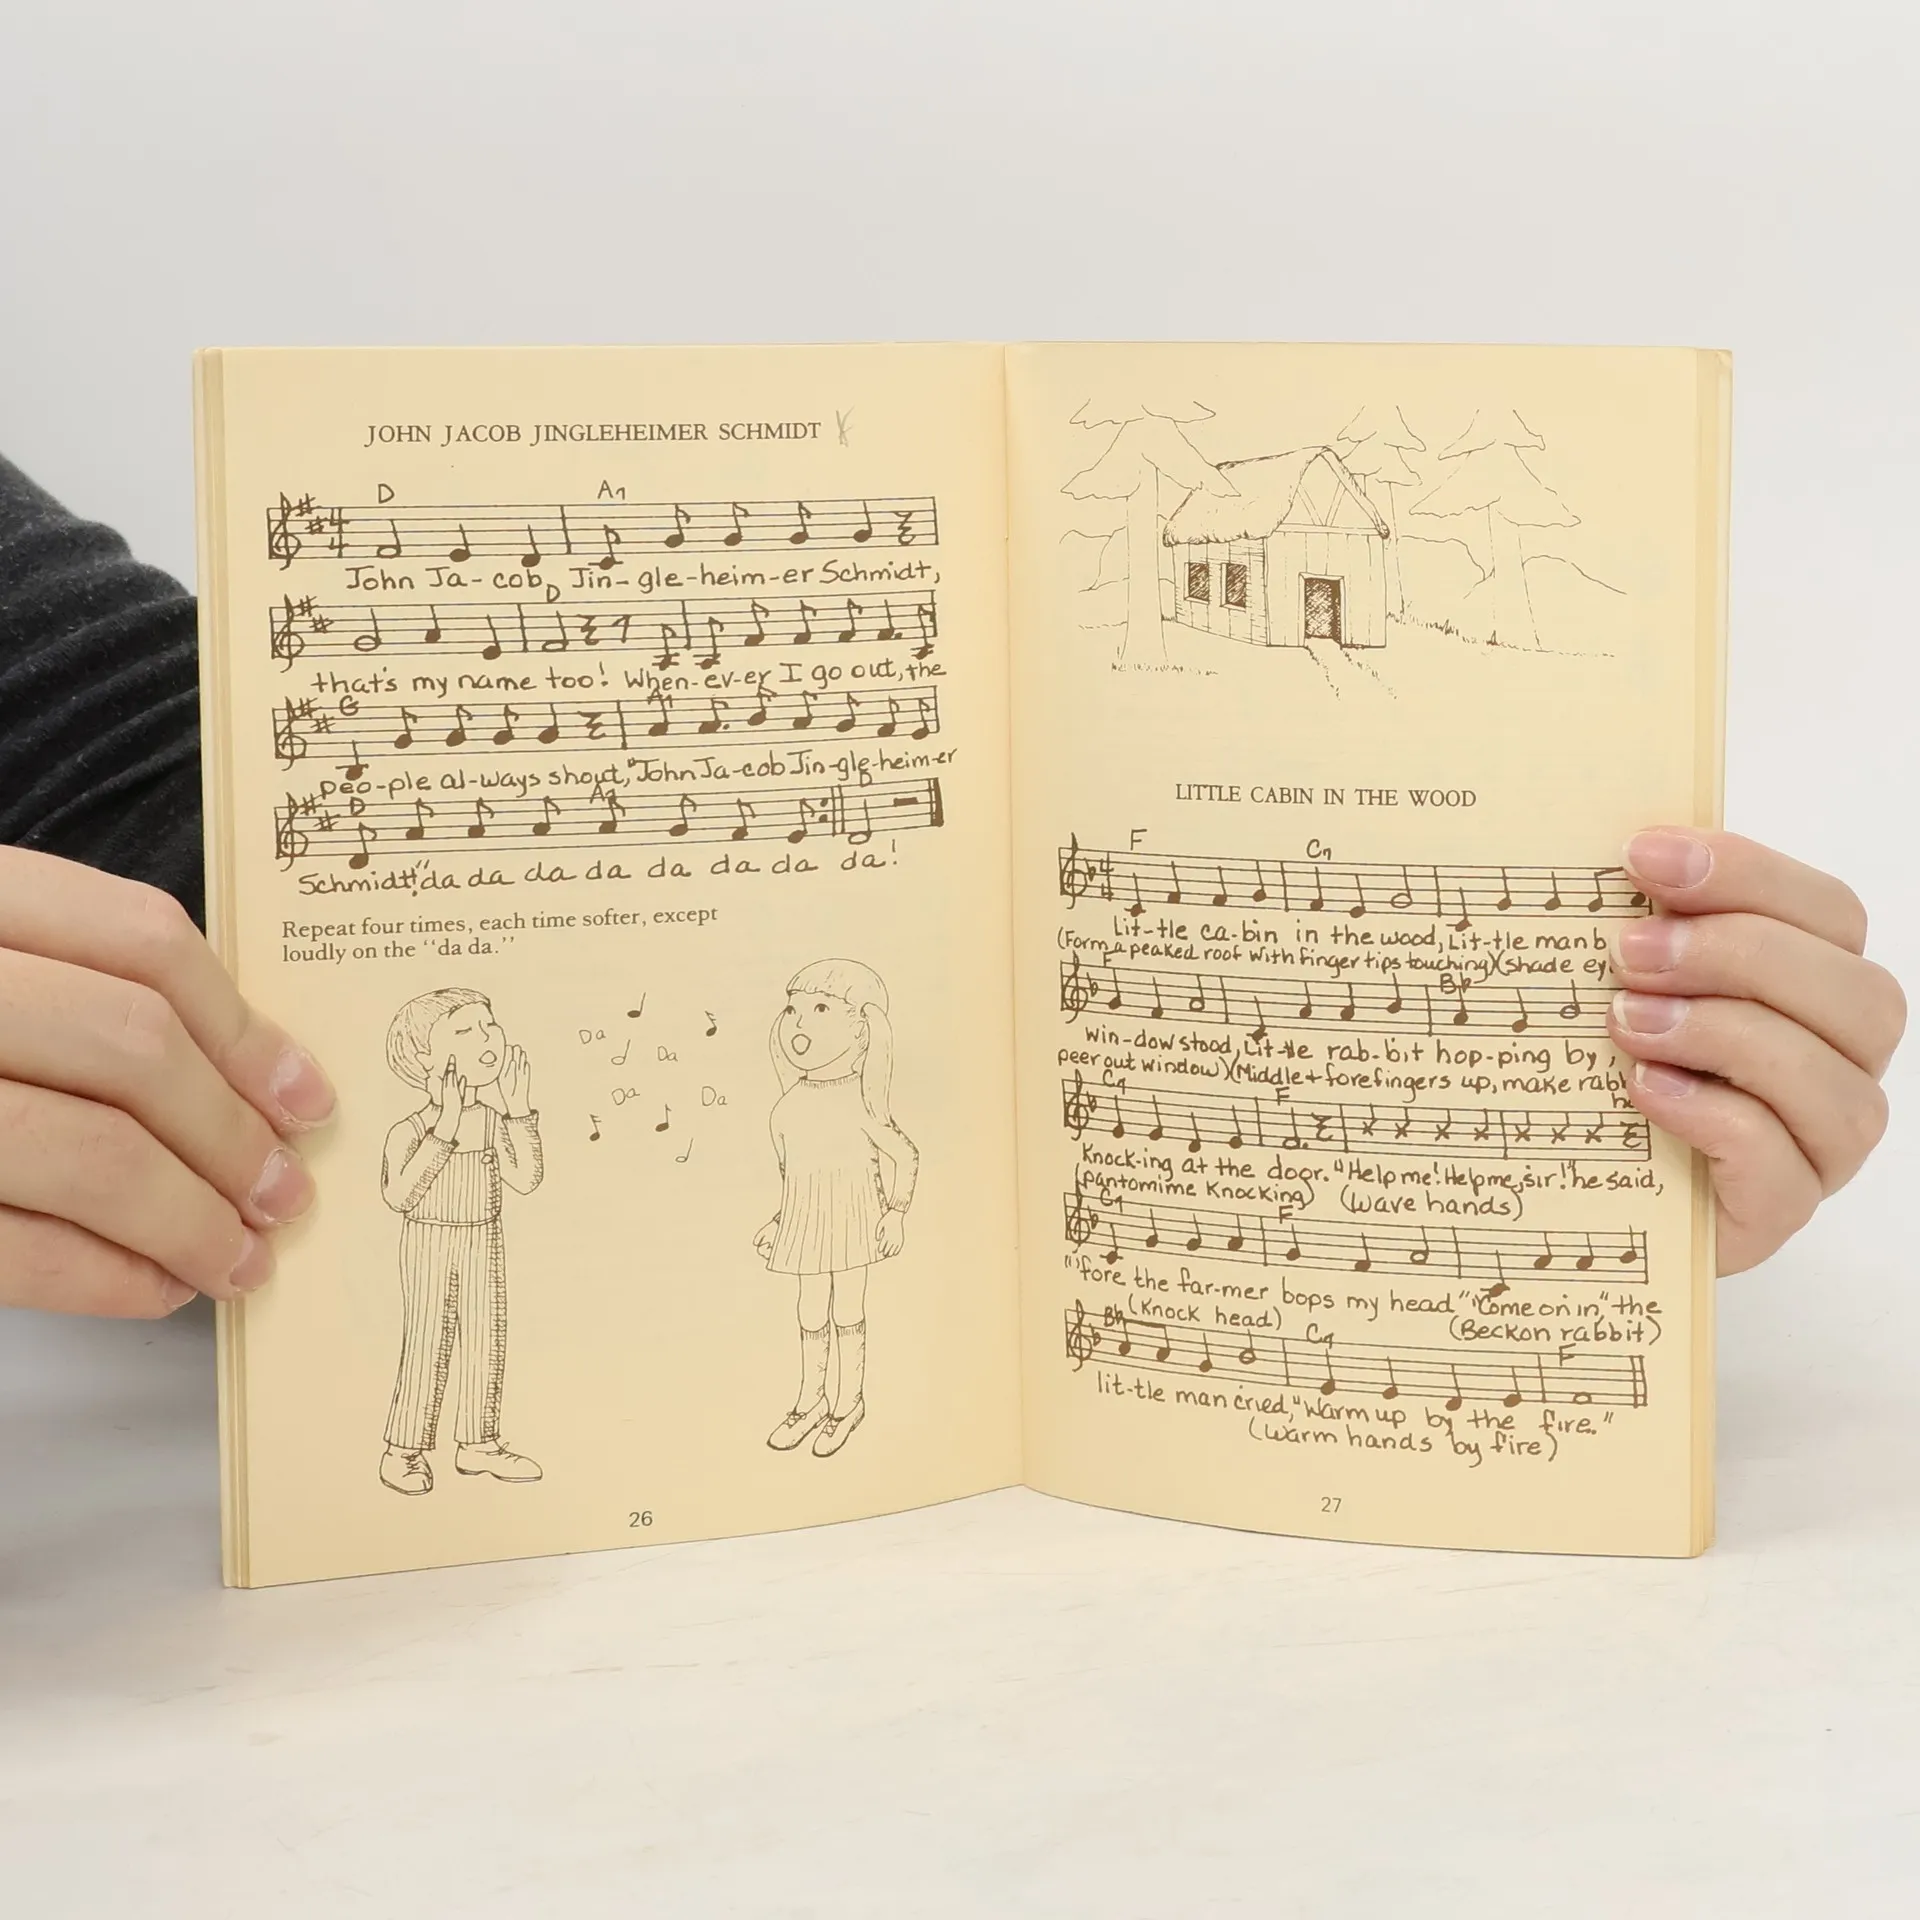 JOHN JACOB JINGLEHEIMER SCHMIDT
D A7
John Ja-cob, Jin-gle-heim-er Schmidt,
D
that's my name too! When-ev-er I go out, the
G A7
peo-ple al-ways shout, "John Ja-cob Jin-gle-heim-er
D A7 D
Schmidt!" da da da da da da da da!
Repeat four times, each time softer, except
loudly on the "da da."
Da
Da
Da Da
26
LITTLE CABIN IN THE WOOD
F C7
Lit-tle ca-bin in the wood, Lit-tle man b
(Form a peaked roof with finger tips touching) (shade ey
F Bb
win-dow stood, Lit-tle rab-bit hop-ping by,
peer out window) (Middle + forefingers up, make rabb
C7 F
Knock-ing at the door. "Help me! Help me, sir!" he said,
(pantomime Knocking) (wave hands)
C7 F
"'fore the far-mer bops my head" "Come on in," the
(Knock head) (Beckon rabbit)
Bb C7 F
lit-tle man cried, "Warm up by the fire."
(warm hands by fire)
27